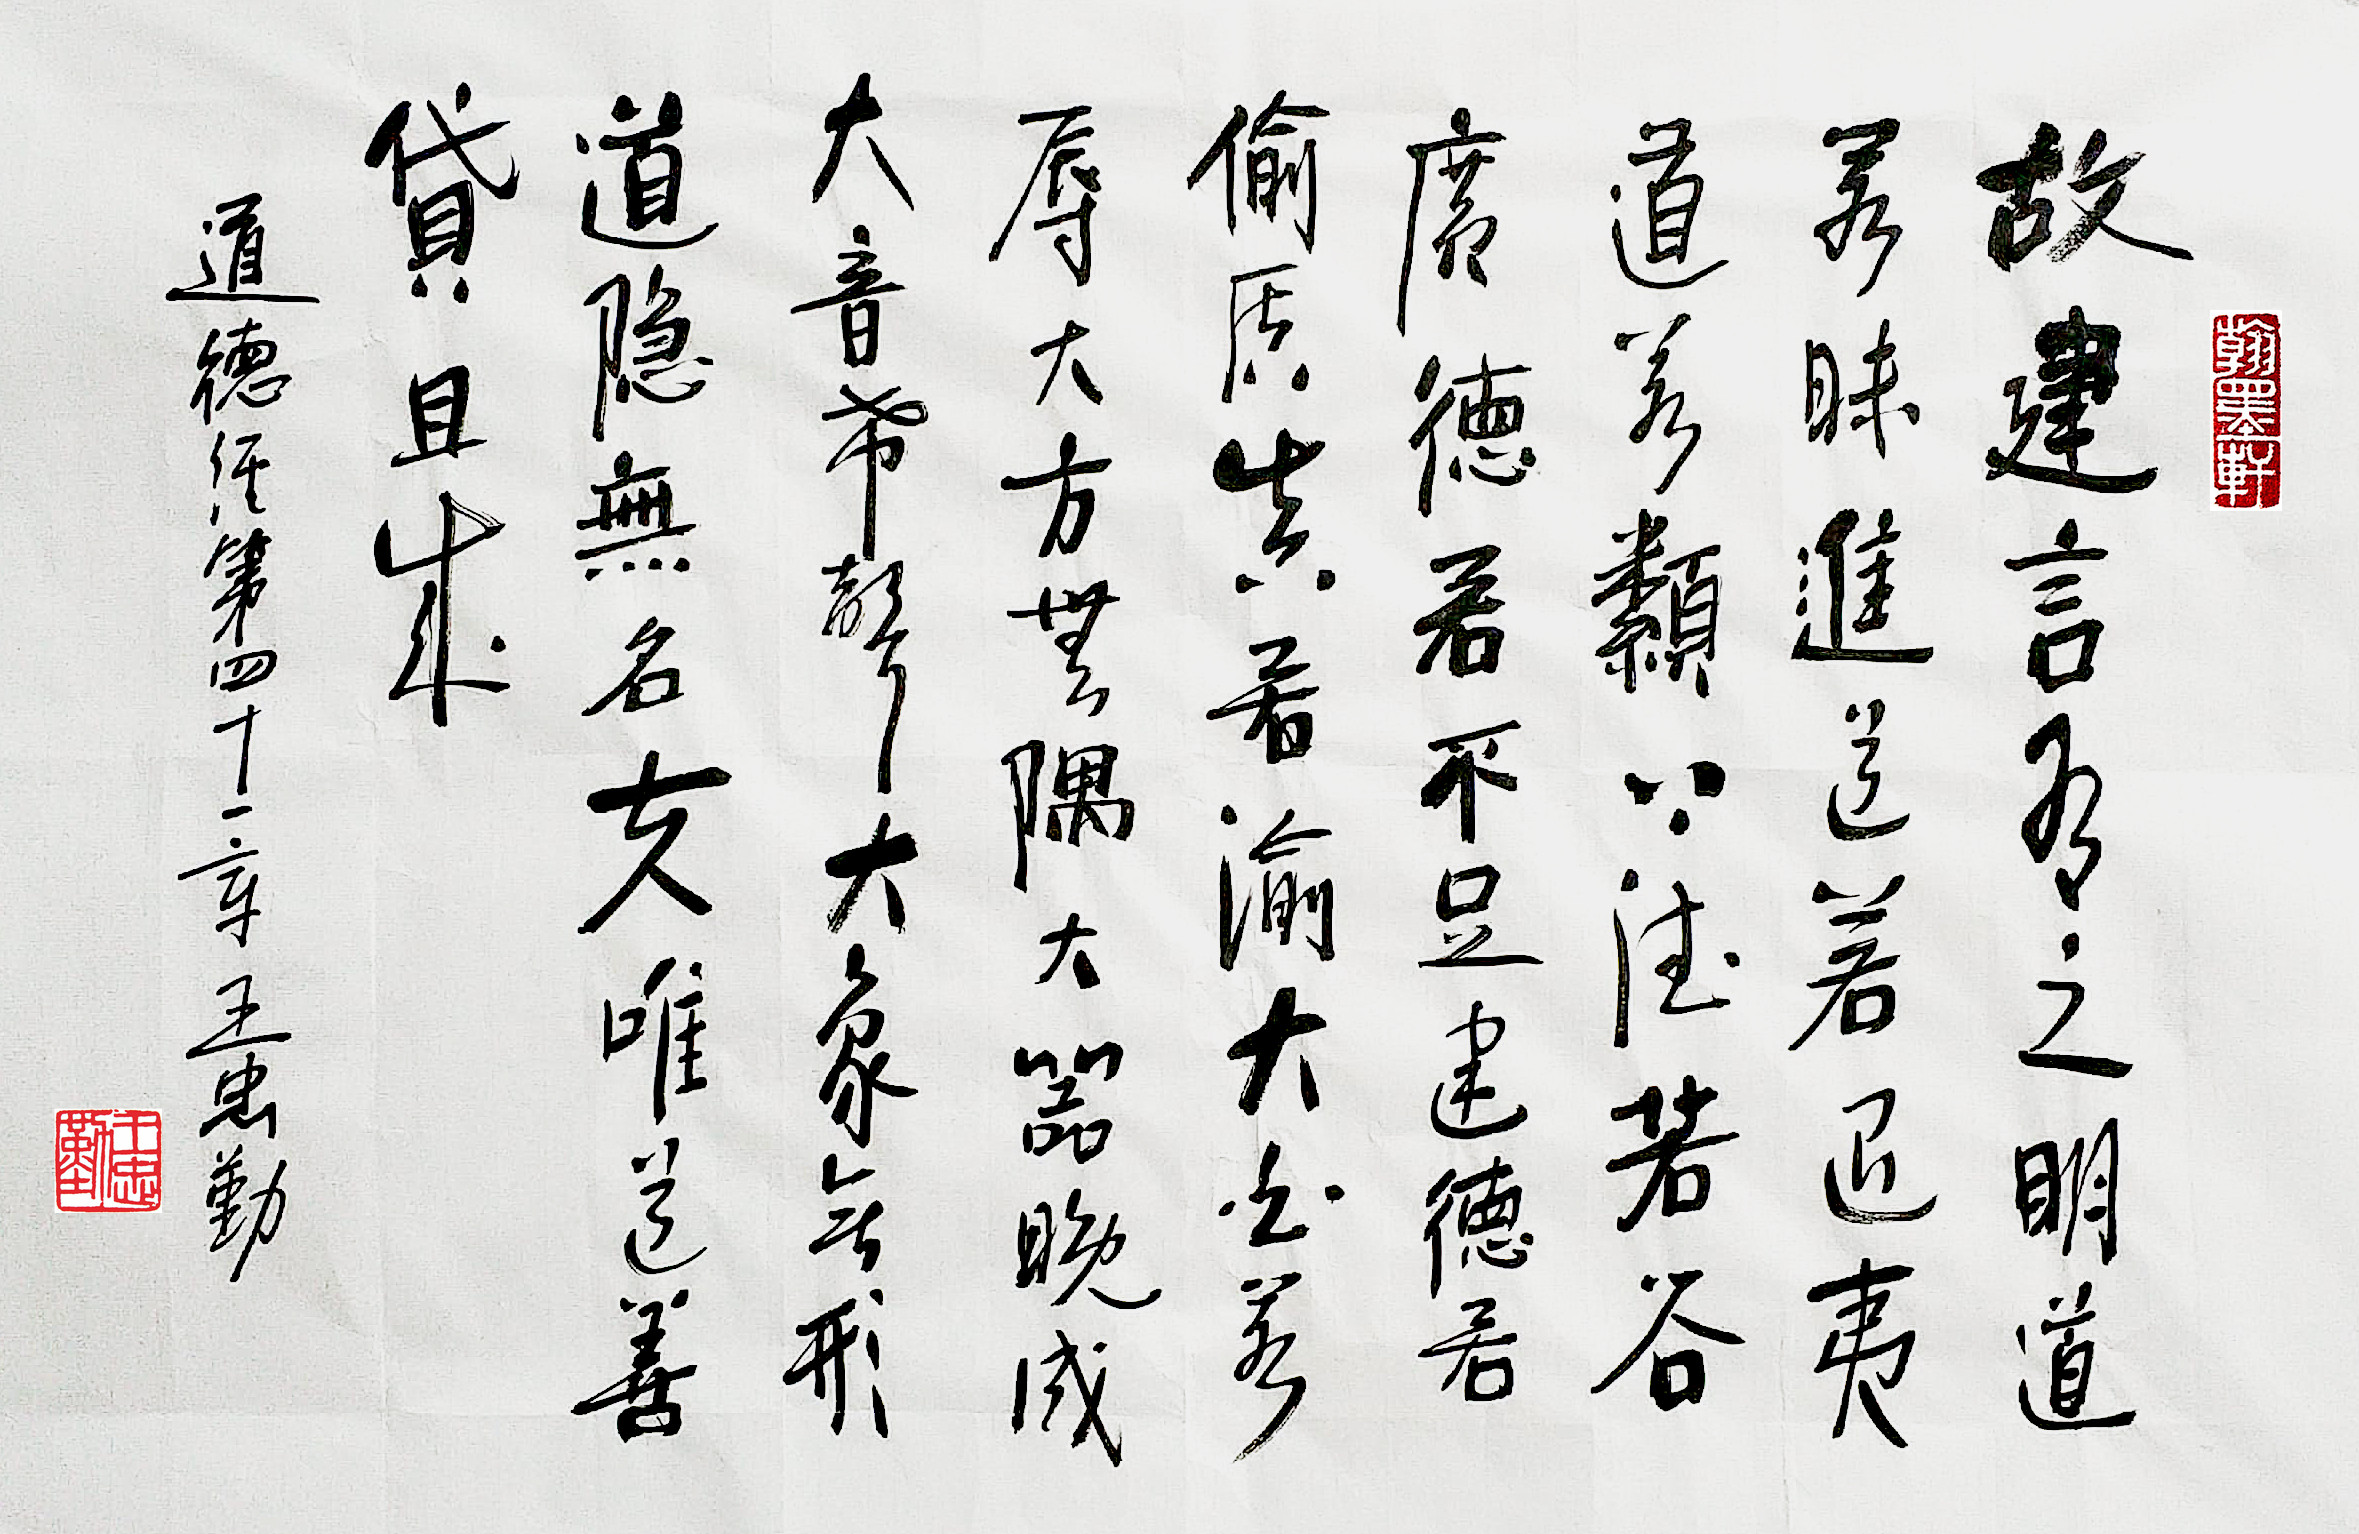 翰墨軒
故建言有之明道
若昧進道若退夷
道若纇上德若谷
廣德若不足建德若
偷质真若渝大白若
辱大方無隅大器晚成
大音希聲大象无形
道隐無名夫唯道善
貸且成
道德经第四十一章王忠勤
王忠勤